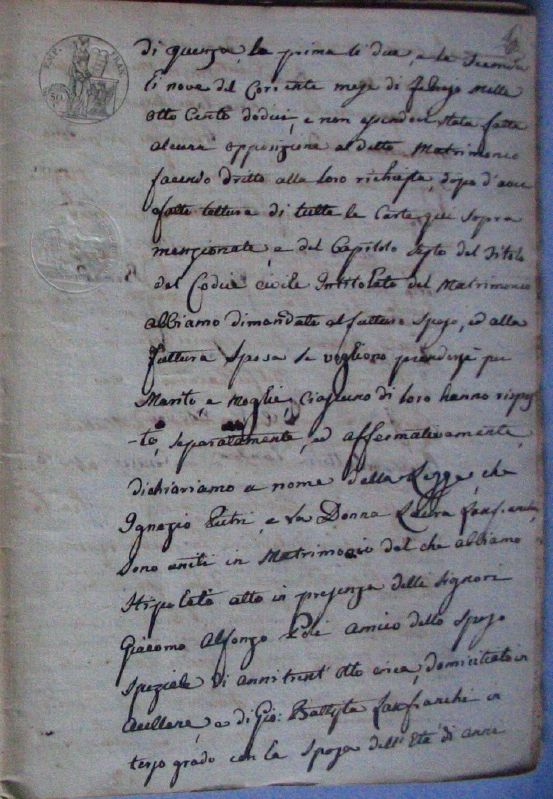 di quenza, la prima li due, e la seconda
li nove del Corrente mese di Febrajo mille
otto Cento dodici, e non essendovi stata fatta
alcuna opposizione a detto Matrimonio
facendo dritto alla loro richiesta, dopo d'aver
fatto lettura di tutte le Carte qui sopra
menzionate, e del Capitolo sesto del Titolo
del Codice Civile Intitolato del Matrimonio
abbiamo dimandato al futturo sposo, ed alla
futtura sposa se vogliono prendersi per
Marito e Moglie, Ciascuno di loro hanno rispos
-to, separatamente, ed affermativamente,
dichiariamo a nome della Legge, che
Ignazio Pietri, e la Donna Laura Lanfranchi
sono uniti in Matrimonio del che abbiamo
stipolato atto in presenza delli Signori
Giacomo Alfonzo amico dello sposo
speziale di anni trent'otto circa, domiciliato in
e di Gio: Battista Lanfranchi in
terzo grado con la sposa dell'Età di anni